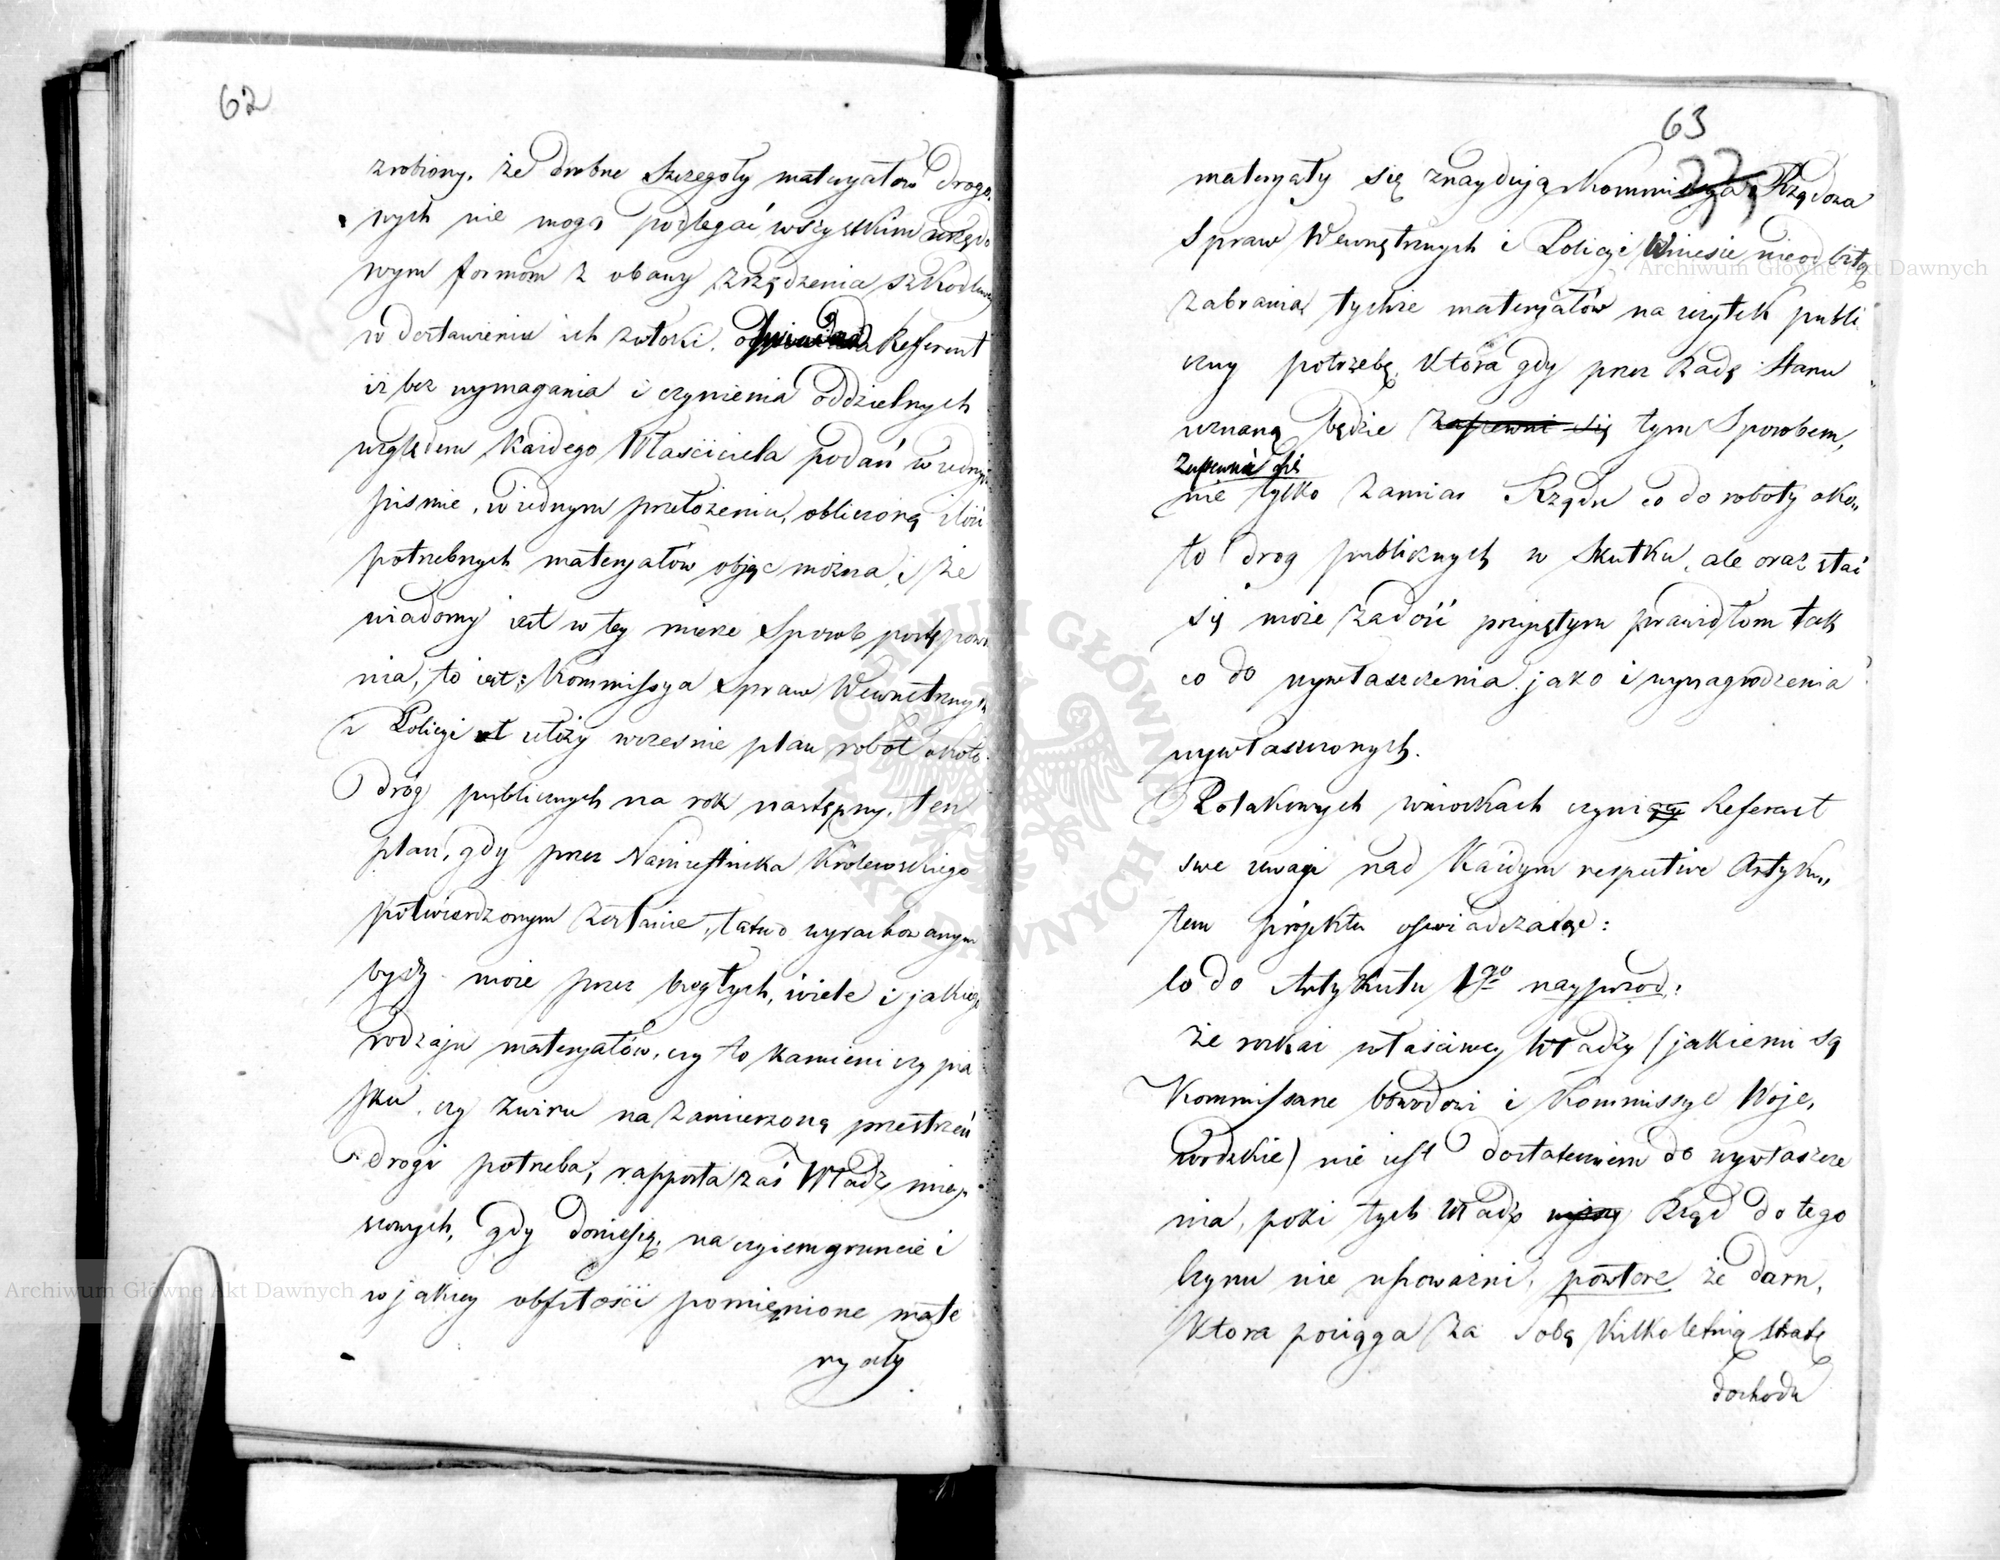 62
zrobiony, że drobne szczegoły materyałów drogo,
wych nie mogą podlegać wszystkim urzędo
wym formom z obawy zrządzenia szkodliwey
w dostawieniu ich zwłoki. Referent
iż bez wymagania i czynienia oddzielnych
względem każdego Właściciela podań w iednym
pismie, w iednym przełożeniu, obliczoną ilość
potrzebnych materyałów objąć można, i że
wiadomy iest w tey mierze Sposob postępowa
nia, to iest: Kommissya Spraw Wewnętrznych
i Policyi ułoży wcześnie plan robot około
dróg publicznych na rok następny, ten
plan, gdy przez Namiestnika Królewskiego
potwierdzonym zostanie, łatwo wyrachowanym
bydź może przez biegłych, wiele i jakiego
rodzaju materyałów, czy to kamieni czy pia
sku, czy żwiru na zamierzoną przestrzeń
drogi potrzeba; rapporta zaś Władz miey
scowych, gdy doniosą, na czyiem gruncie i
w jakiey obfitości pomienione mate
ryały
63
materyały się znayduią Kommissya Rządowa
Spraw Wewnętrznych i Policyi Wniesie nieodbitą
zabrania tychże materyałów na użytek publi
czny potrzebę, która gdy przez Radę Stanu
uznaną będzie zapewni się tym Sposobem,
zapewnia się
nie tylko zamiar Rządu co do roboty oko,,
ło drog publicznych w skutku, ale oraz stać
się może zadość przyiętym prawidłom tak
co do wywłaszczenia jako i wynagrodzenia
wywłaszczonych.
Po takowych wnioskach czyni Referent
swe uwagi nad każdym respective Artyku,,
łem projektu oświadczaiąc:
Co do Artykułu 1go nayprzod:
że rozkaz właściwey Władzy (jakiemi są
Kommissarze Obwodowi i Kommissye Woje,
wodzkie) nie iest dostatecznem do wywłaszcze
nia, poki tych Władz Rząd do tego
Czynu nie upoważni, powtore że darn,
która pociąga za Sobą kilkoletnią stratę
dochodu
Archiwum Główne Akt Dawnych
Archiwum Główne Akt Dawnych
ARCHIWUM GŁÓWNE AKT DAWNYCH